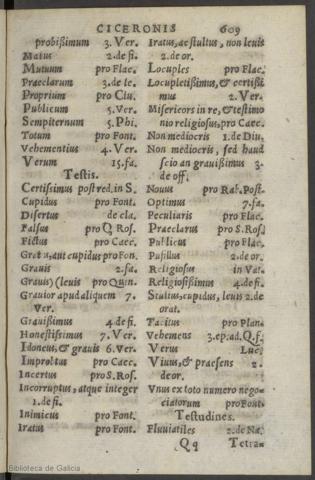 CICERONIS 609
probißimum 3. Ver.
Matus 2. de fi.
Mutuum pro Flac.
Praeclarum 3. de le.
Proprium pro Clu.
Publicum 5. Ver.
Sempiternum 5. Phi.
Totum pro Font.
Vehementius 4. Ver.
Verum 15. fa.
Testis.
Certißimus post red. in S.
Cupidus pro Font.
Disertus de cla.
Falsus pro Q Ros.
Fictus pro Caec.
Gratus, aut cupidus pro Fon.
Grauis 2. fa.
Grauis) (leuis pro Quin.
Grauior apud aliquem 7.
Ver.
Grauißimus 4 de fi.
Honestißimus 7. Ver.
Idoneus, & grauis 6. Ver.
Improbus pro Caec.
Incertus pro S. Ros.
Incorruptus, atque integer
1. de fi.
Inimicus pro Font.
Iratus pro Font.
Iratus, ac stultus, non leuis
2. de or.
Locuples pro Flac.
Locupletißimus, & certißi
mus 2. Ver.
Misericors in re, & testimo
nio religiosus, pro Caec.
Non mediocris 1. de Diu.
Non mediocris, sed haud
scio an grauißimus 3.
de off.
Nouus pro Rab. Post.
Optimus 7. fa.
Peculiaris pro Flac.
Praeclarus pro S. Ros.
Publicus pro Flac.
Pusillus 2. de or.
Religiosus in Vat.
Religiosißimus 4. de fi.
Stultus, cupidus, leuis 2. de
orat.
Tacitus pro Plan.
Vehemens 3. ep. ad Q. f.
Verus Luc.
Viuus, & praesens 2.
de or.
Vnus ex toto numero nego=
ciatorum pro Font.
Testudines.
Fluuiatiles 2. de Na.
Q q Tetra=
Biblioteca de Galicia